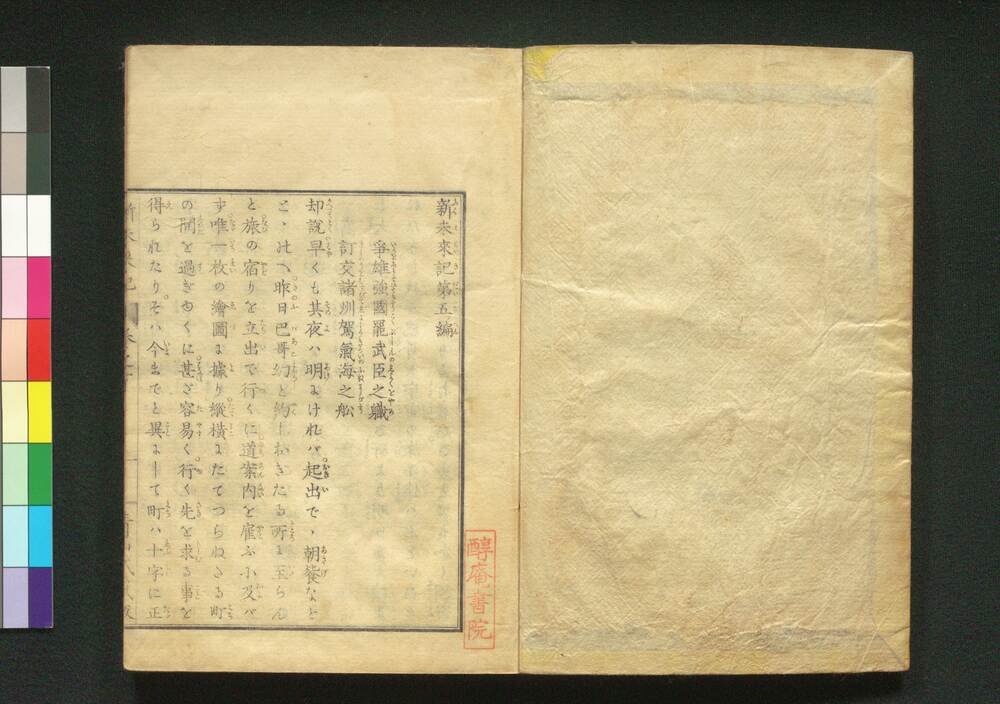 新未來記第五編
爭雄強國罷武臣之職
訂交諸州駕氣海之舩
却說早くも其夜ハ明にけれバ起出で、朝餐など
と、昨日巴哥幻と約しおきたる所に至らん
と旅の宿りを立出で行くに道案内を雇ふ小及バ
ず唯一枚の繪圖に據り縱橫にたてつらねたる町
の間を過ぎゆくに甚ざ容易く行く先を求る事を
得られたりそハ今までと異にして町ハ十字に正
醇庵書院